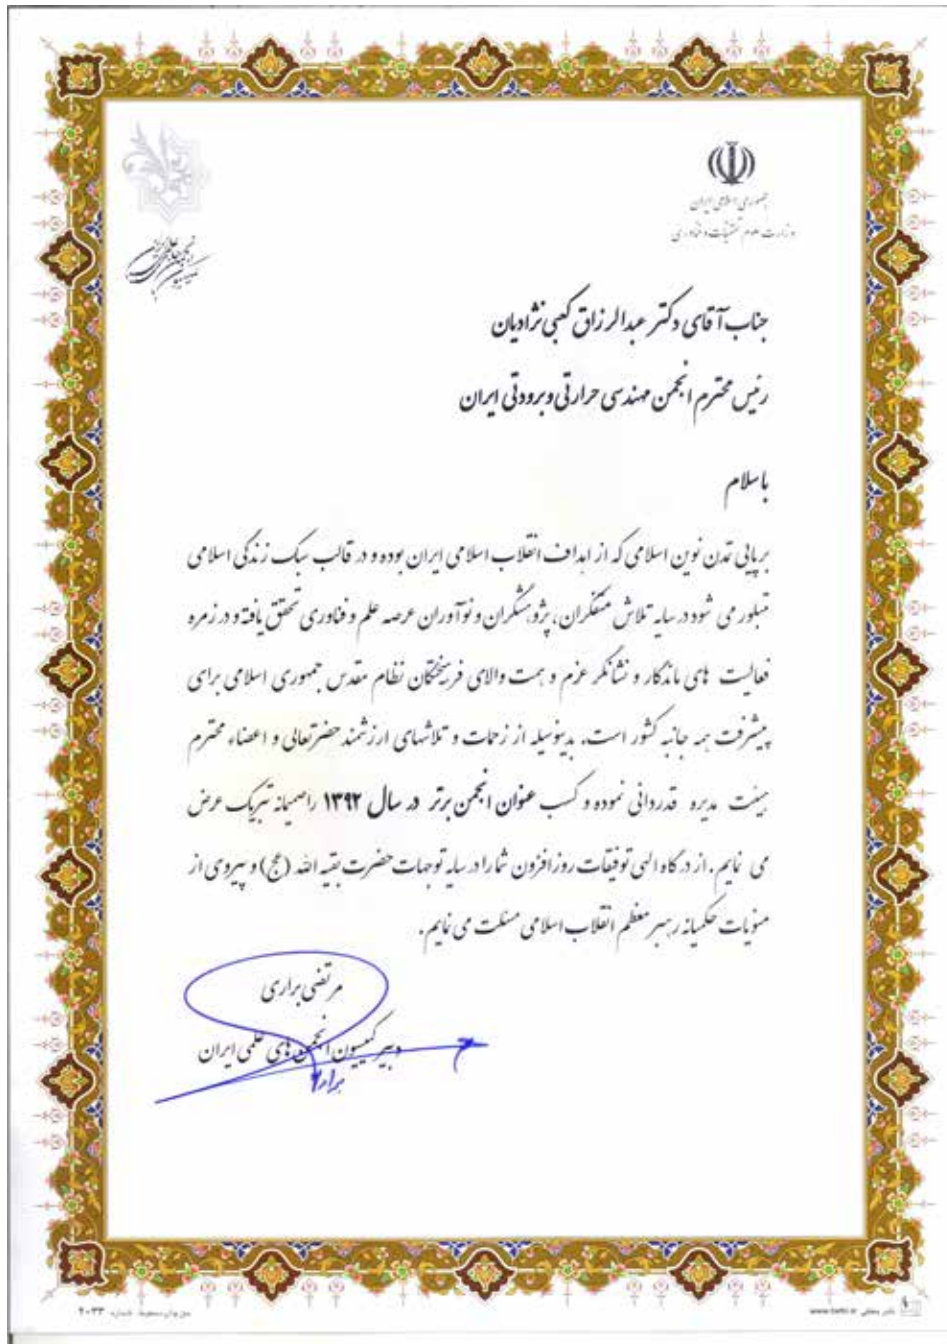 جمهوری اسلامی ایران
وزارت علوم تحقیقات و فناوری
کمیسیون انجمن‌های علمی ایران
جناب آقای دکتر عبدالرزاق کعبی نژادیان
رئیس محترم انجمن مهندسی حرارتی و برودتی ایران
باسلام
برپایی تمدن نوین اسلامی که از اهداف انقلاب اسلامی ایران بوده و در قالب سبک زندگی اسلامی
متبلور می شود در سایه تلاش متفکران، پژوهشگران و نوآوران عرصه علم و فناوری تحقق یافته و در زمره
فعالیت های ماندگار و نشانگر عزم و همت والای فرهیختگان نظام مقدس جمهوری اسلامی برای
پیشرفت همه جانبه کشور است. بدینوسیله از زحمات و تلاشهای ارزشمند حضرتعالی و اعضاء محترم
هیئت مدیره قدردانی نموده و کسب عنوان انجمن برتر در سال ۱۳۹۲ را صمیمانه تبریک عرض
می نمایم. از درگاه الهی توفیقات روزافزون شما را در سایه توجهات حضرت بقیه الله (عج) و پیروی از
منویات حکیمانه رهبر معظم انقلاب اسلامی مسئلت می نمایم.
مرتضی براری
دبیر کمیسیون انجمن های علمی ایران